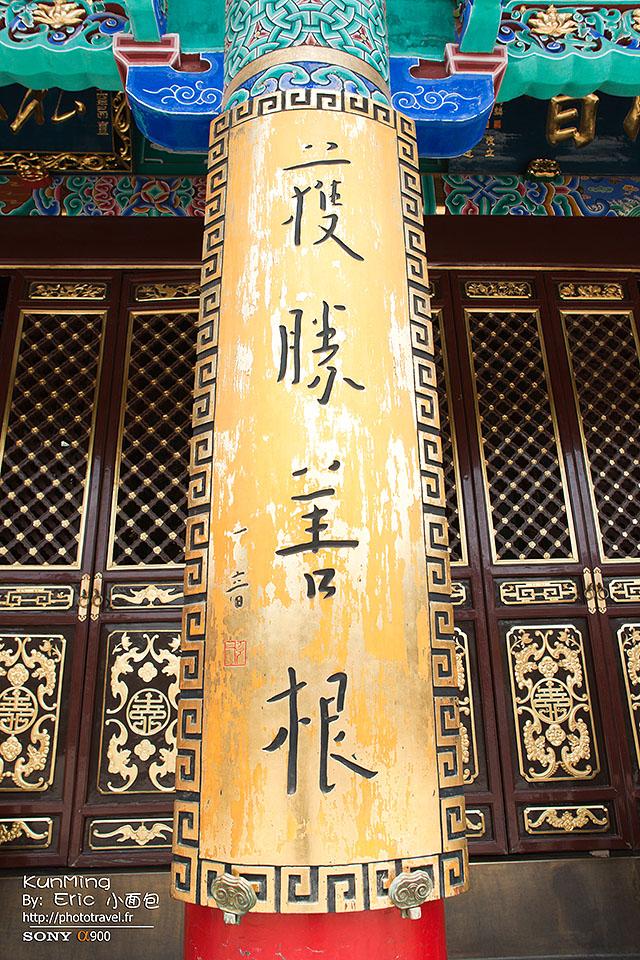 獲勝善根
一音
KunMing
By: Eric 小面包
http://phototravel.fr
SONY α900